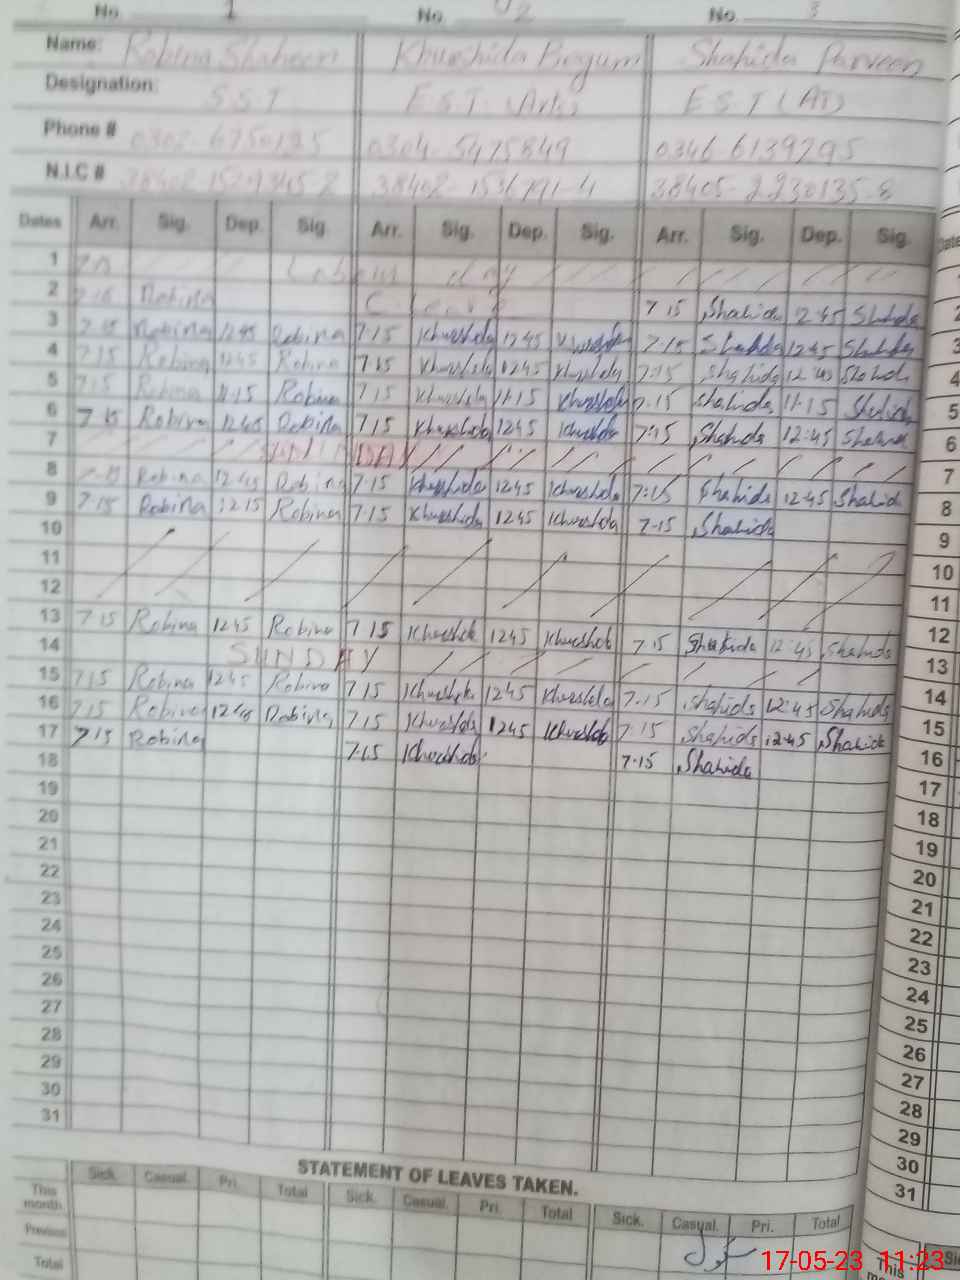 No. 1 No. 02 No. 3
Name: Robina Shaheen Khurshida Begum Shahida Parveen
Designation: S.S.T E.S.T (Arts) E.S.T (AT)
Phone # 0304-5475849 0346-6139795
N.I.C # 38405-2230135-8
Dates Arr. Sig. Dep. Sig Arr. Sig. Dep. Sig. Arr. Sig. Dep. Sig.
1 day
2 7 15 Robina C. leave 7 15 Shahida 12:45 Shahida 2
3 7 15 Robina 12 45 Robina 7:15 Khurshida 12 45 Khurshida 7:15 Shahida 12:45 Shahida 3
4 7 15 Robina 12 45 Robina 7:15 Khurshida 12 45 Khurshida 7:15 Shahida 12:45 Shahida 4
5 7 15 Robina 11:15 Robina 7 15 Khurshida 11:15 Khurshida 7:15 Shahida 11:15 Shahida 5
6 7 15 Robina 12 45 Robina 7 15 Khurshida 12 45 Khurshida 7:15 Shahida 12:45 Shahida 6
7 SUNDAY 7
8 Robina 12 45 Robina 7:15 Khurshida 12 45 Khurshida 7:15 Shahida 12:45 Shahida 8
9 7 15 Robina 12 15 Robina 7:15 Khurshida 12 45 Khurshida 7-15 Shahida 9
10 10
11 11
12
13 7 15 Robina 12 45 Robina 7 15 Khurshida 12 45 Khurshida 7 15 Shahida 12:45 Shahida 12
14 SUNDAY 13
15 7 15 Robina 12 45 Robina 7 15 Khurshida 12 45 Khurshida 7:15 Shahida 12:45 Shahida 14
16 7 15 Robina 12 45 Robina 7:15 Khurshida 12 45 Khurshida 7:15 Shahida 12:45 Shahida 15
17 7 15 Robina 7:15 Khurshida 7-15 Shahida 16
18 17
19 18
20 19
21 20
22 21
23 22
24 23
25 24
26 25
27 26
28 27
29 28
30 29
31 30
31
STATEMENT OF LEAVES TAKEN.
Sick. Casual. Pri. Total Sick. Casual. Pri. Total Sick. Casual. Pri. Total
This month
Previous
Total
This
17-05-23 11:23